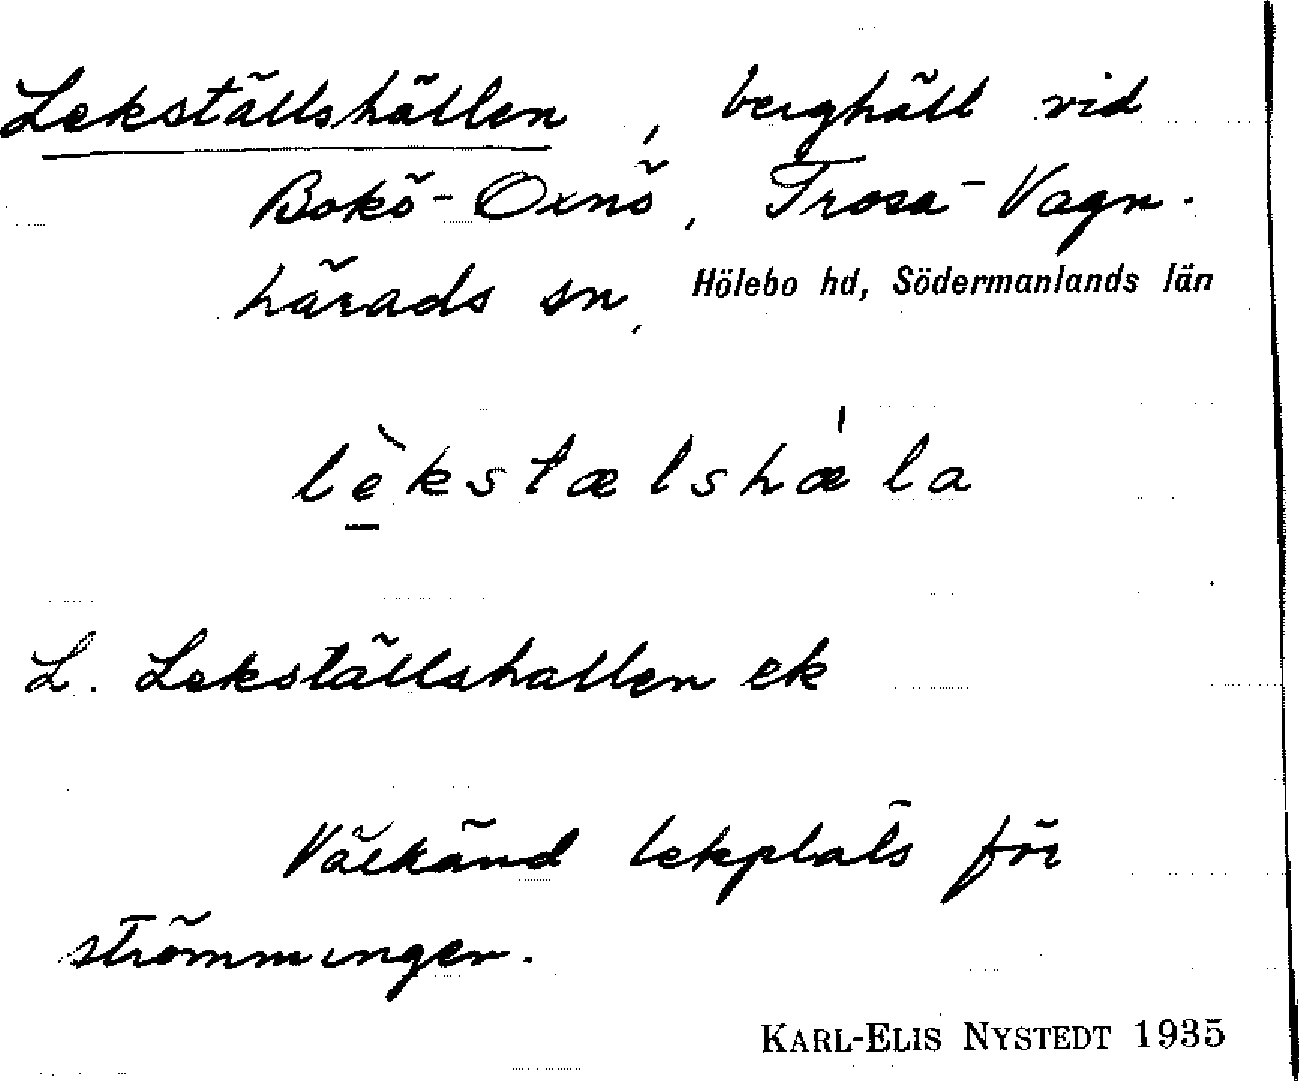 Lekställshällen, berghäll vid
Bokö-Oxnö, Trosa-Vagn-
härads sn, Hölebo hd, Södermanlands län
lèkstælshæ´la
L. Lekställshallen ek
Välkänd lekplats för
strömmingen.
KARL-ELIS NYSTEDT 1935